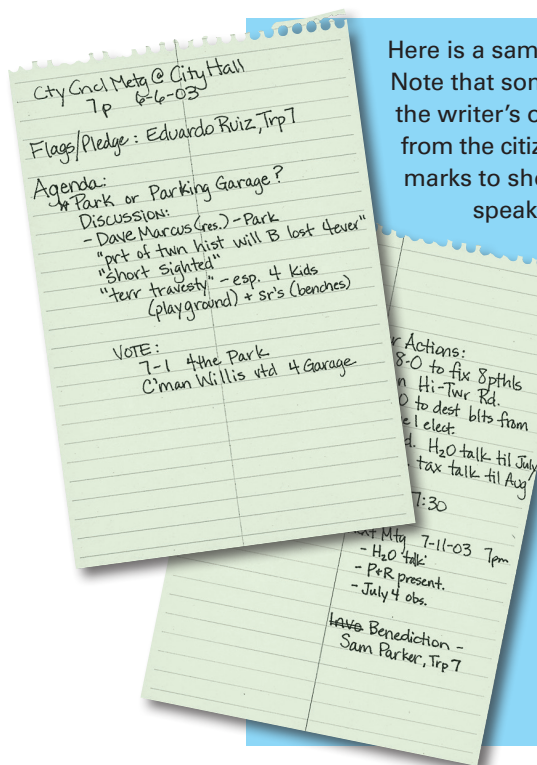 Here is a sam
Note that som
the writer's o
from the citiz
marks to sho
speak
Cty Cncl Metg @ City Hall
7p 6-6-03
Flags/Pledge: Eduardo Ruiz, Trp 7
Agenda:
* Park or Parking Garage?
Discussion:
- Dave Marcus (res.) - Park
"prt of twn hist will B lost 4ever"
"short sighted"
"terr travesty" - esp. 4 kids
(playground) + sr's (benches)
VOTE:
7-1 4 the Park
C'man Willis vtd 4 Garage
r Actions:
8-0 to fix 8pthls
n Hi-Twr Rd.
0 to dest blts from
e 1 elect.
d. H₂O talk til July
. tax talk til Aug
7:30
xt Mtg 7-11-03 7pm
- H₂O talk
- P+R present.
- July 4 obs.
Invo Benediction -
Sam Parker, Trp 7